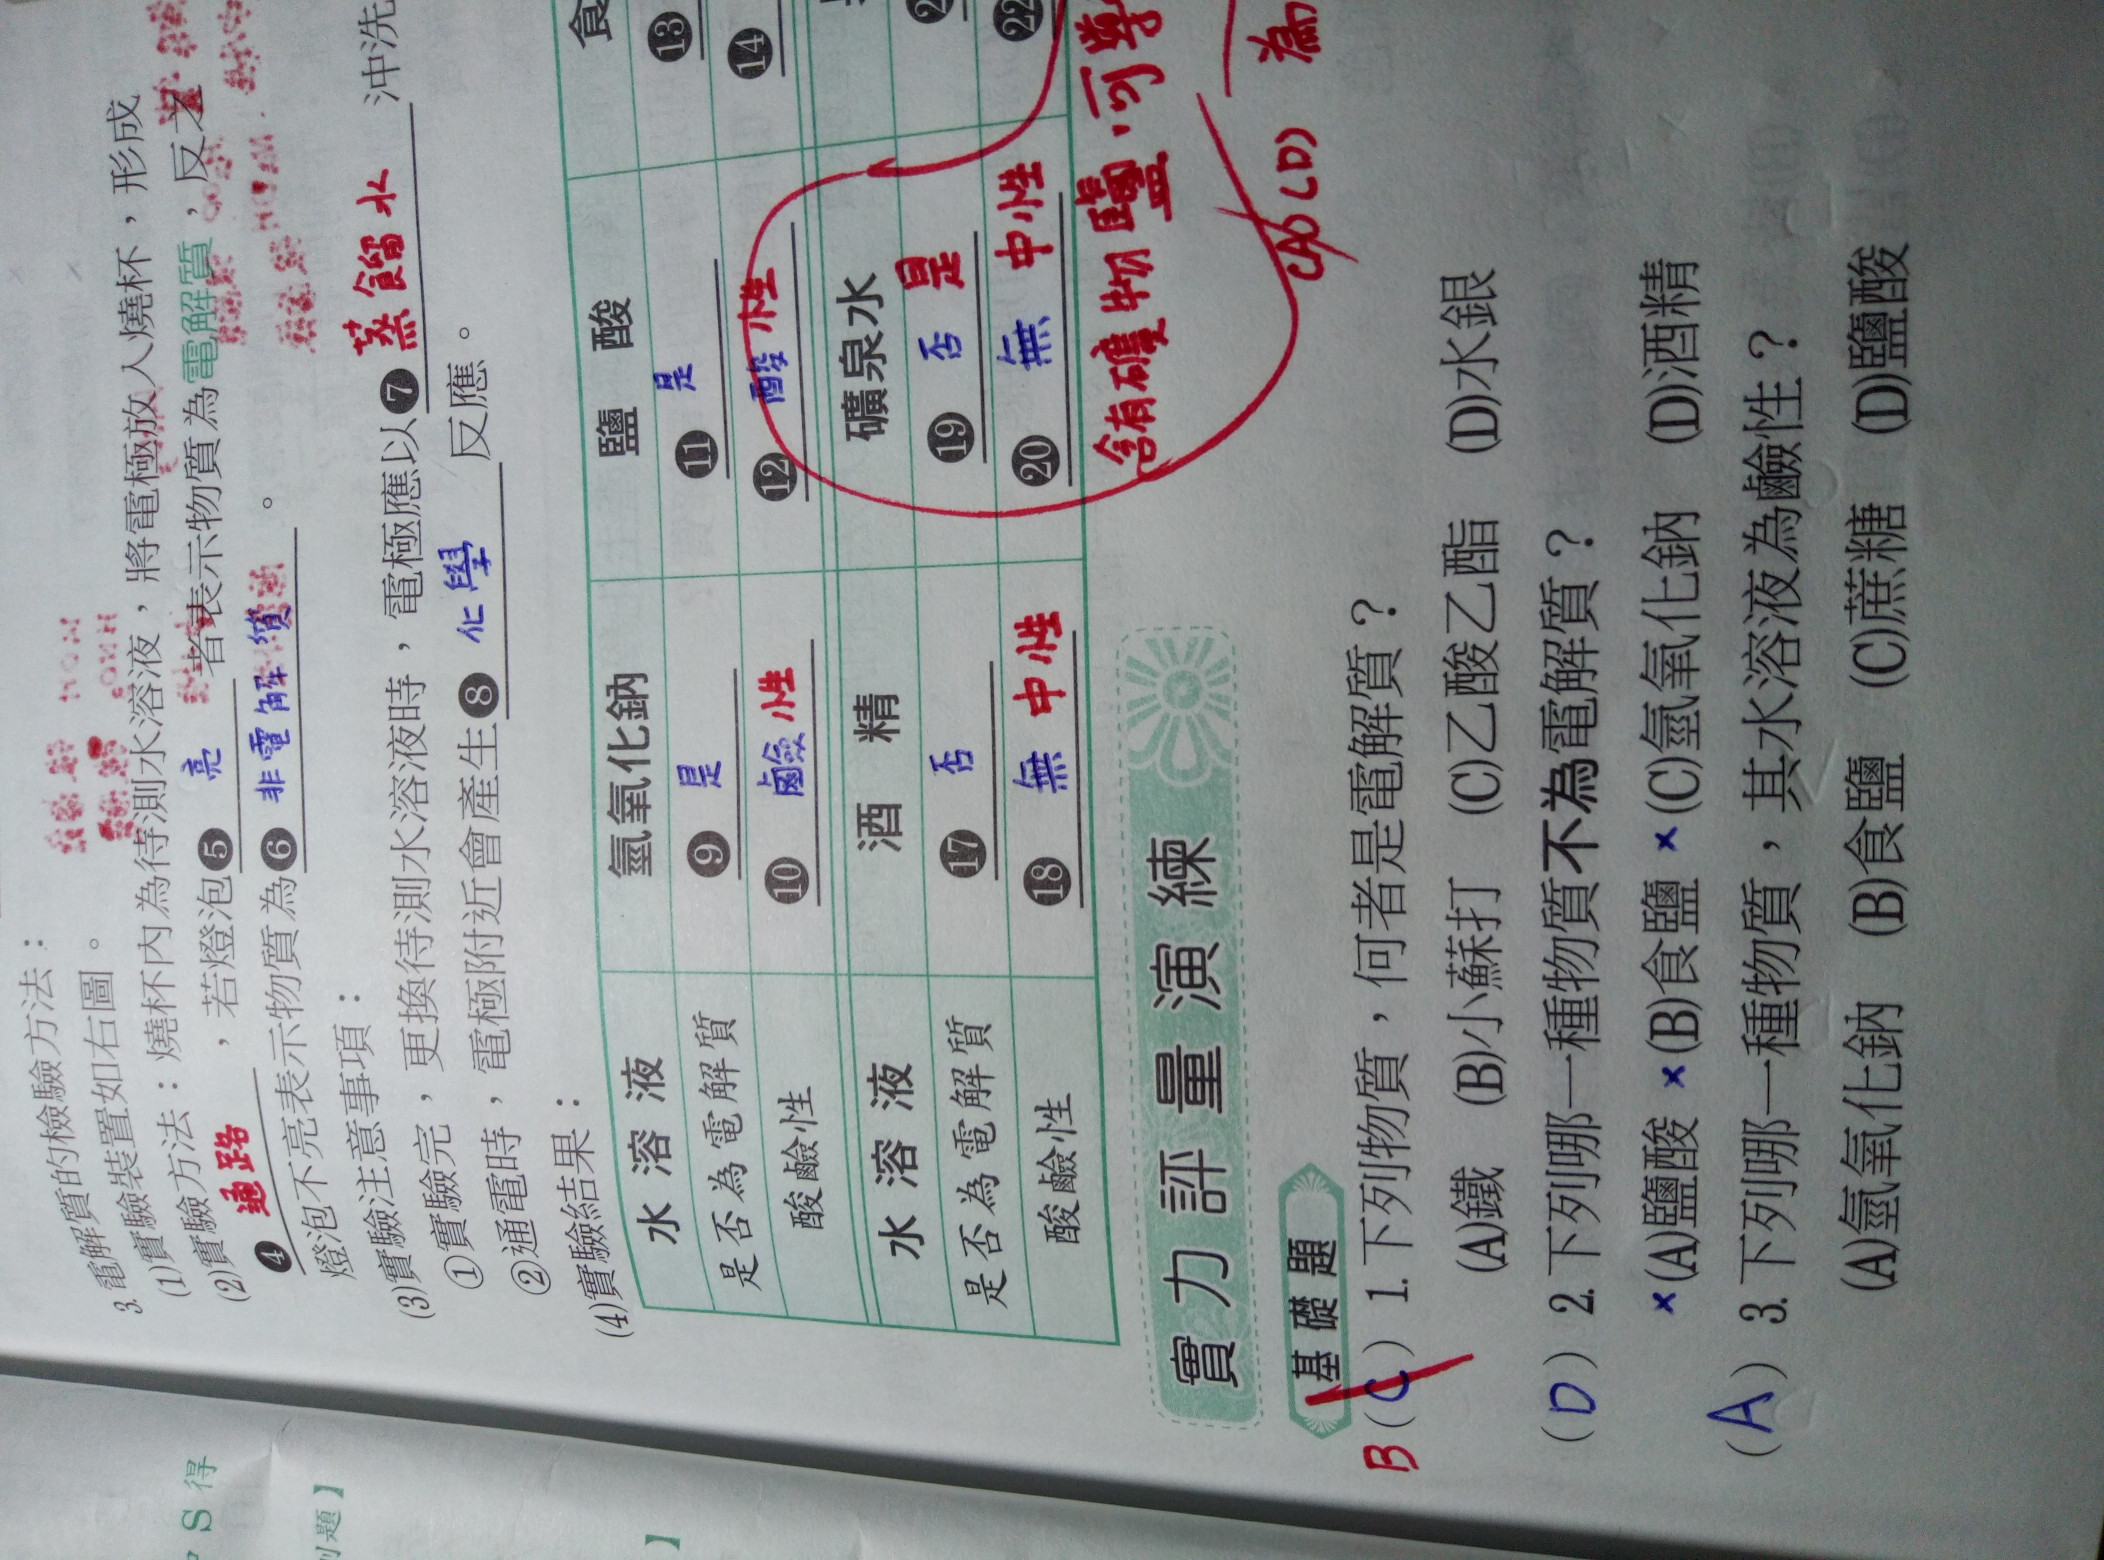 S 得
列題】
】
電解質的檢驗方法：
3. 電解質的檢驗裝置如右圖。
(1)實驗裝置如右圖。
(1)實驗方法：燒杯內為待測水溶液，將電極放入燒杯，形成
(2)實驗方法：
❹ 通路，若燈泡❺ 亮 者表示物質為電解質，反之
燈泡不亮表示物質為❻ 非電解質。
(3)實驗注意事項：
①實驗完，更換待測水溶液時，電極應以❼ 蒸餾水 沖洗
②通電時，電極附近會產生❽ 化學 反應。
(4)實驗結果：
水溶液 氫氧化鈉 鹽酸 食
是否為電解質 ❾ 是 ⓫ 是 ⓭
酸鹼性 ❿ 鹼性 ⓬ 酸性 ⓮
水溶液 酒精 礦泉水
是否為電解質 ⓱ 否 ⓳ 否 是
酸鹼性 ⓲ 無 中性 ⓴ 無 中性 ㉒
含有礦物鹽，可導
(A)(D) 為
實力評量演練
基礎題
B (C) 1. 下列物質，何者是電解質？
(A)鐵 (B)小蘇打 (C)乙酸乙酯 (D)水銀
(D) 2. 下列哪一種物質不為電解質？
×(A)鹽酸 ×(B)食鹽 ×(C)氫氧化鈉 (D)酒精
(A) 3. 下列哪一種物質，其水溶液為鹼性？
(A)氫氧化鈉 (B)食鹽 (C)蔗糖 (D)鹽酸